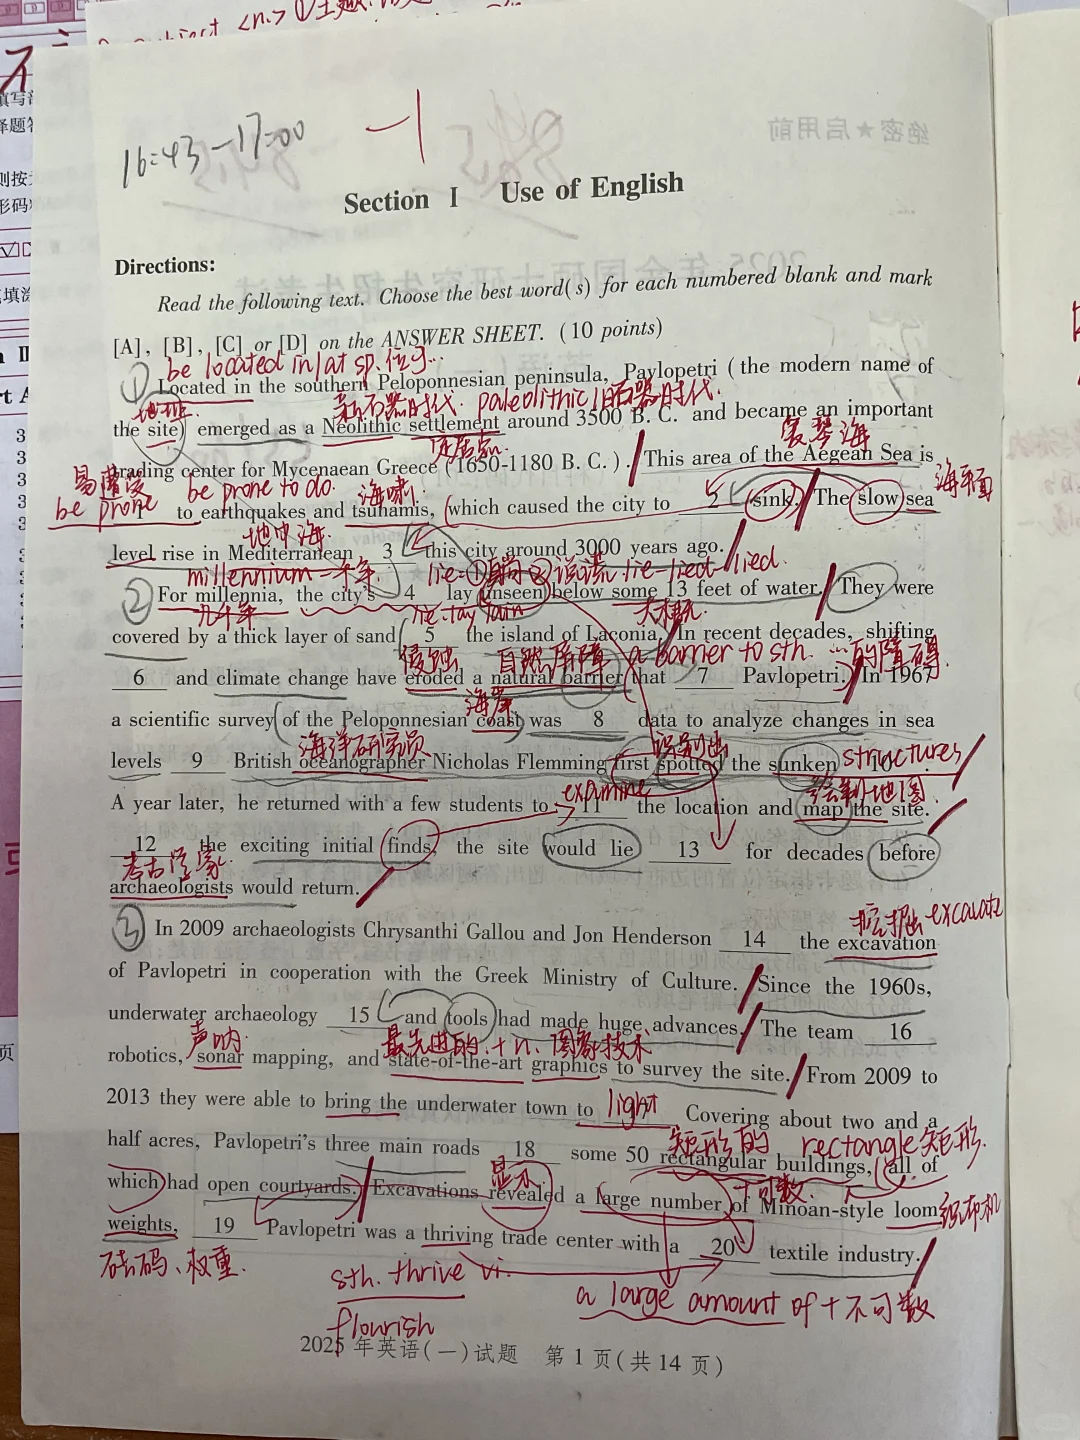 16:43-17:00
一1
Section Ⅰ Use of English
Directions:
Read the following text. Choose the best word(s) for each numbered blank and mark
[A], [B], [C] or [D] on the ANSWER SHEET. (10 points)
be located in/at sp. 位于…
① Located in the southern Peloponnesian peninsula, Pavlopetri (the modern name of
地址 新石器时代. paleolithic 旧石器时代.
the site) emerged as a Neolithic settlement around 3500 B. C. and became an important
定居点. 爱琴海
trading center for Mycenaean Greece (1650-1180 B. C.). This area of the Aegean Sea is
易遭受 be prone to do. 海啸. 海平面
be prone 1 to earthquakes and tsunamis, which caused the city to 2 sink. The slow sea
地中海.
level rise in Mediterranean 3 this city around 3000 years ago.
millennium 一千年. lie=①躺 ②说谎 lie-lied-lied.
② For millennia, the city's 4 lay unseen below some 13 feet of water. They were
lie-lay-lain
covered by a thick layer of sand 5 the island of Laconia. In recent decades, shifting
侵蚀 自然屏障 a barrier to sth. …的障碍.
6 and climate change have eroded a natural barrier that 7 Pavlopetri. In 1967
海岸
a scientific survey of the Peloponnesian coast was 8 data to analyze changes in sea
海洋研究员 识别出
levels 9 British oceanographer Nicholas Flemming first spotted the sunken 10 structures
examine 绘制地图.
A year later, he returned with a few students to 11 the location and map the site.
12 the exciting initial finds, the site would lie 13 for decades before
考古学家.
archaeologists would return.
挖掘 excavate
③ In 2009 archaeologists Chrysanthi Gallou and Jon Henderson 14 the excavation
of Pavlopetri in cooperation with the Greek Ministry of Culture. Since the 1960s,
underwater archaeology 15 and tools had made huge advances. The team 16
声呐 最先进的. +n. 图像技术
robotics, sonar mapping, and state-of-the-art graphics to survey the site. From 2009 to
2013 they were able to bring the underwater town to light Covering about two and a
矩形的 rectangle 矩形.
half acres, Pavlopetri's three main roads 18 some 50 rectangular buildings, all of
显示 +可数.
which had open courtyards. Excavations revealed a large number of Minoan-style loom 织布机
weights, 19 Pavlopetri was a thriving trade center with a 20 textile industry.
砝码、权重.
sth. thrive vi.
a large amount of + 不可数
flourish
2025 年英语(一)试题 第 1 页(共 14 页)